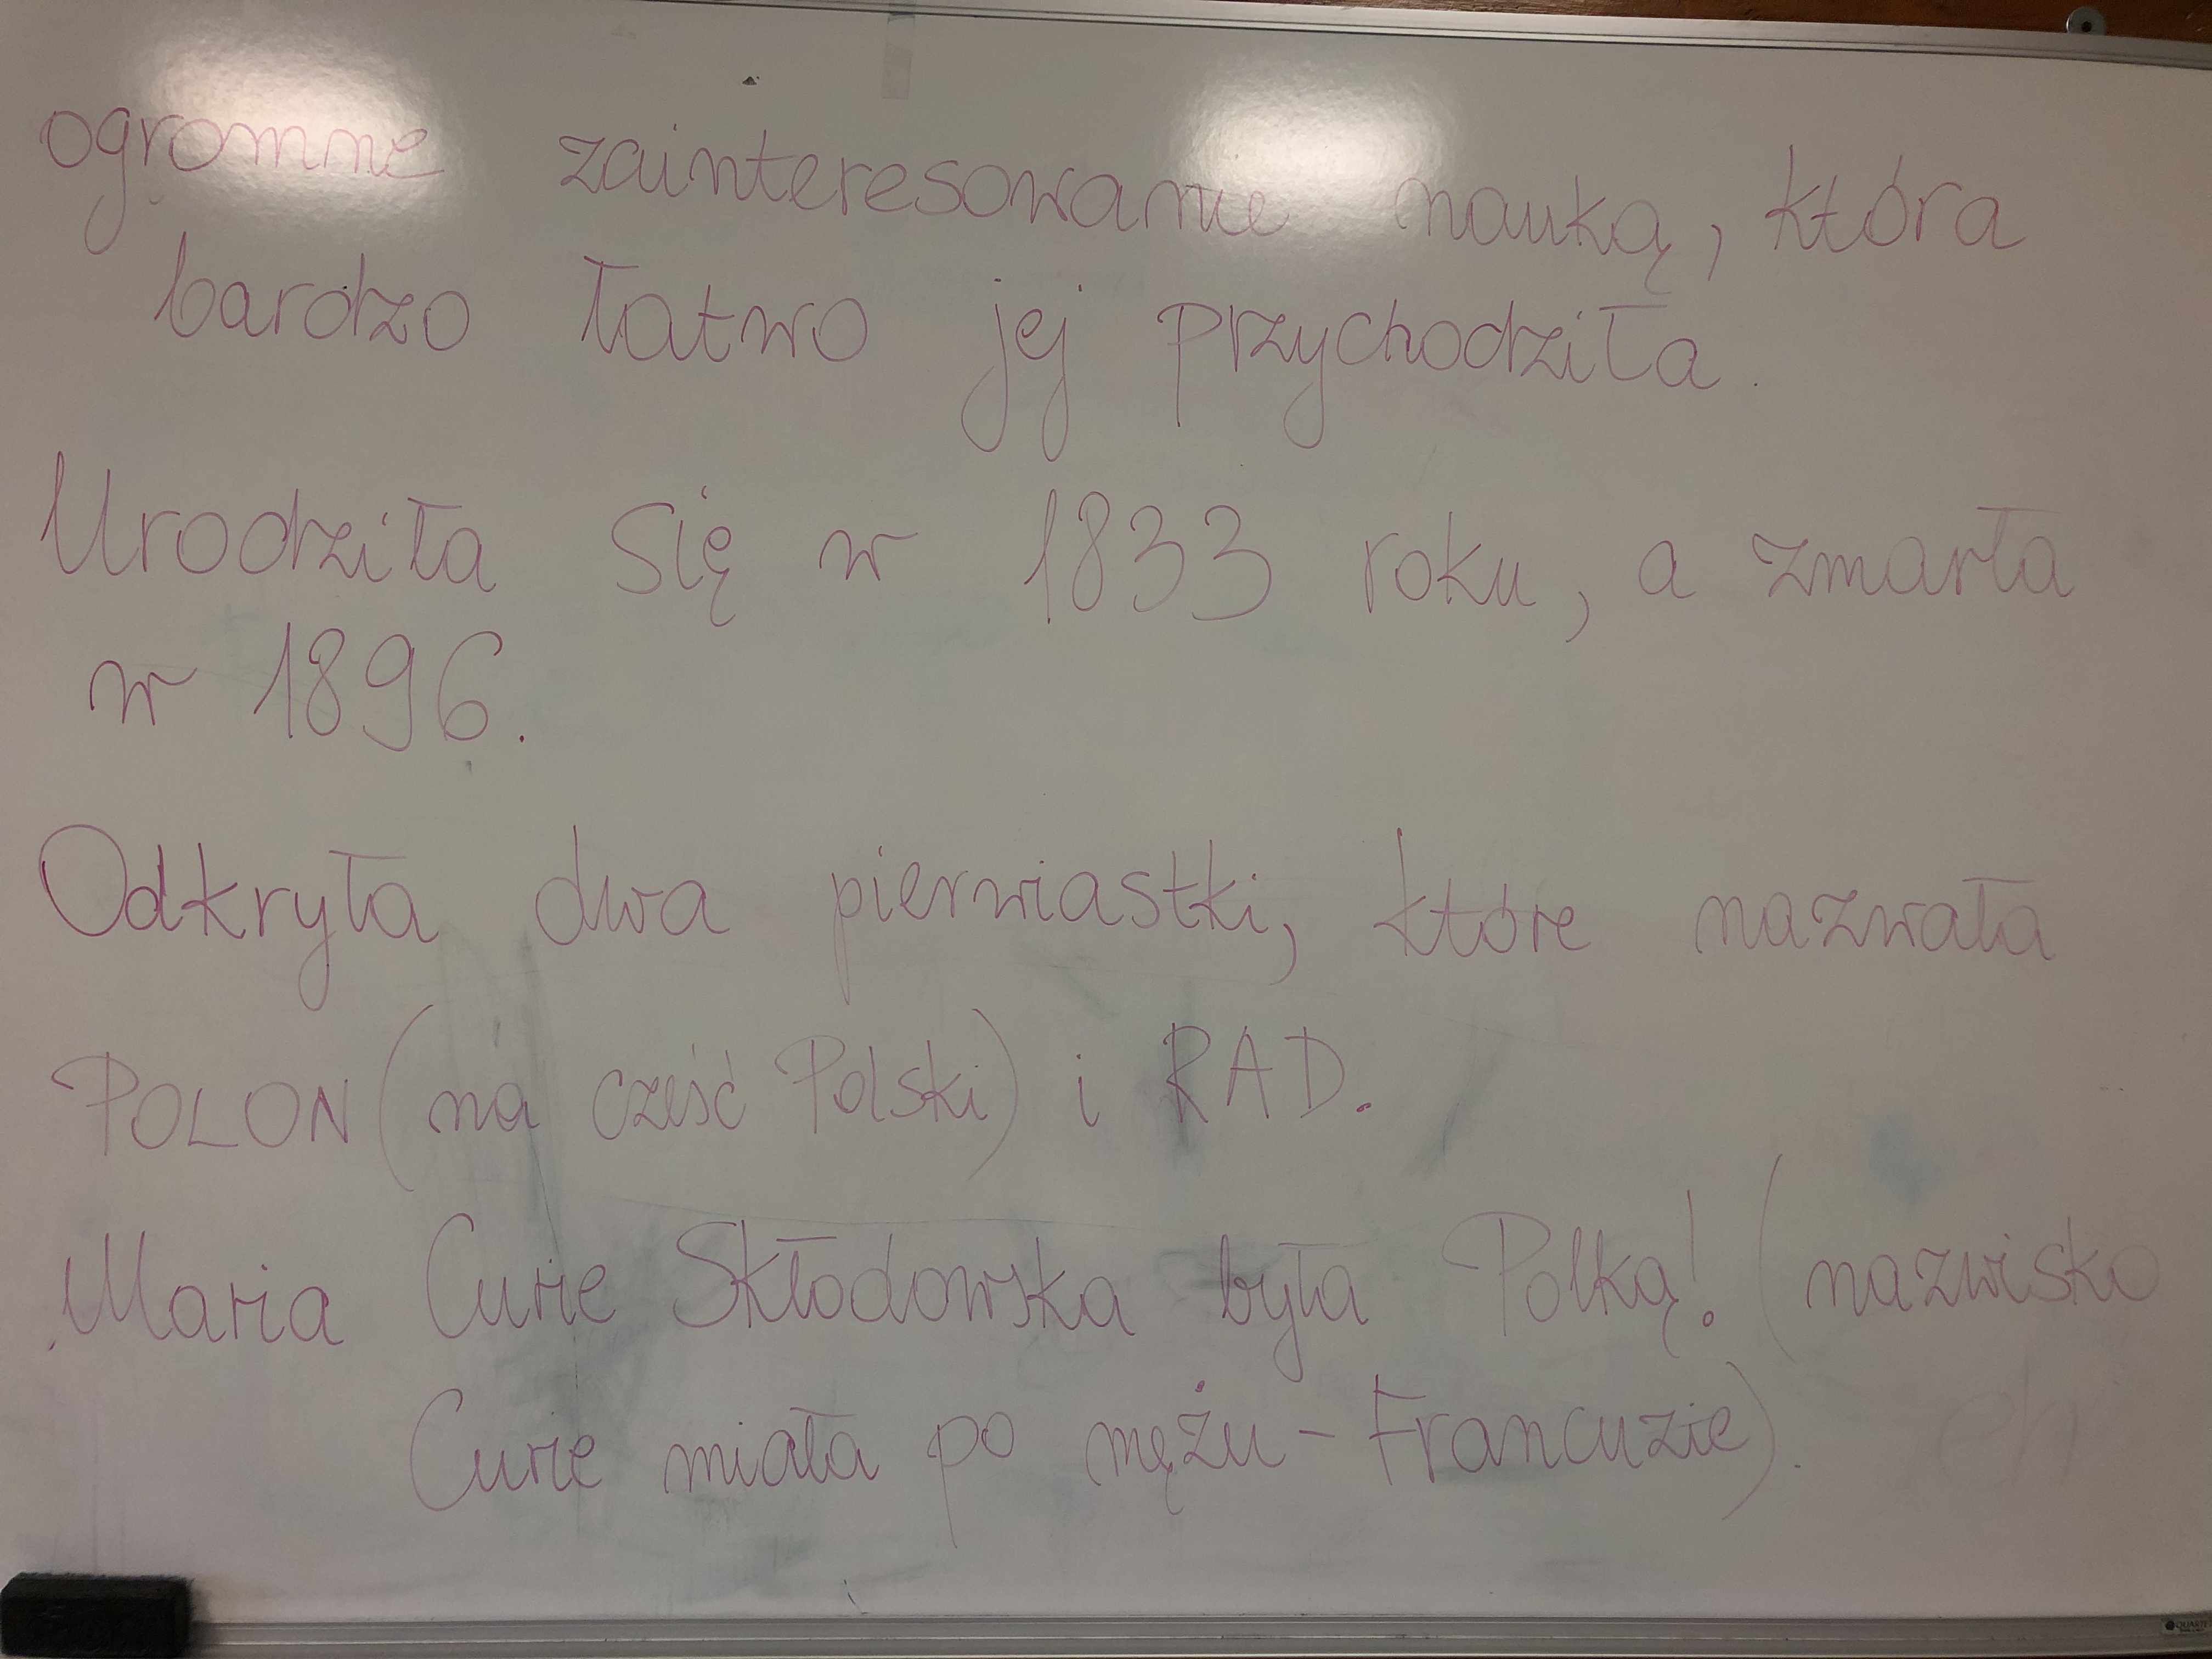 ogromne zainteresowanie nauką, która
bardzo łatwo jej przychodziła.
Urodziła się w 1833 roku, a zmarła
w 1896.
Odkryła dwa pierwiastki, które nazwała
POLON (na cześć Polski) i RAD.
Maria Curie Skłodowska była Polką! (nazwisko
Curie miała po mężu - Francuzie).